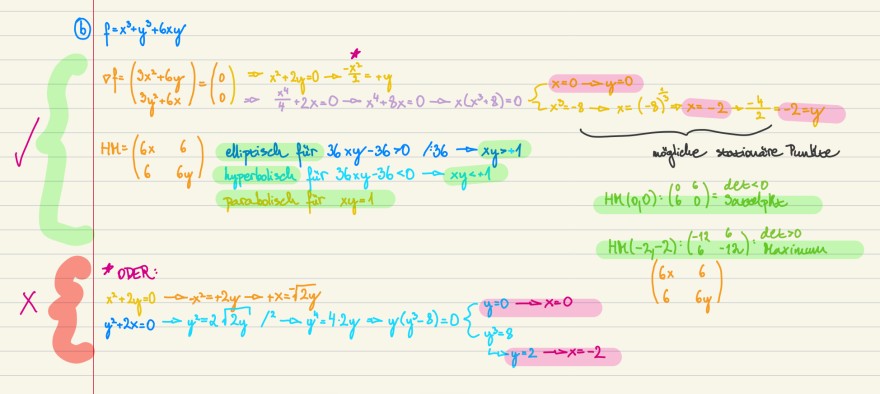 b f=x³+y³+6xy
∇f=(3x²+6y / 3y²+6x)=(0 / 0) ⇒ x²+2y=0 → * -x²/2=+y
⇒ x⁴/4+2x=0 → x⁴+8x=0 → x(x³+8)=0 { x=0 → y=0
x³=-8 → x=(-8)^(1/3) ⇒ x=-2 → -4/2=-2=y
mögliche stationäre Punkte
✓ HM=(6x 6 / 6 6y) elliptisch für 36xy-36>0 /:36 → xy>+1
hyperbolisch für 36xy-36<0 → xy<+1
parabolisch für xy=1
HM(0,0): (0 6 / 6 0)= det<0 Sattelpkt
HM(-2,-2): (-12 6 / 6 -12): det>0 Maximum
(6x 6 / 6 6y)
X * ODER:
x²+2y=0 → -x²=+2y → +x=-√2y
y²+2x=0 → y²=2√2y /² → y⁴=4·2y ⇒ y(y³-8)=0 { y=0 → x=0
y³=8
↳ y=2 → x=-2